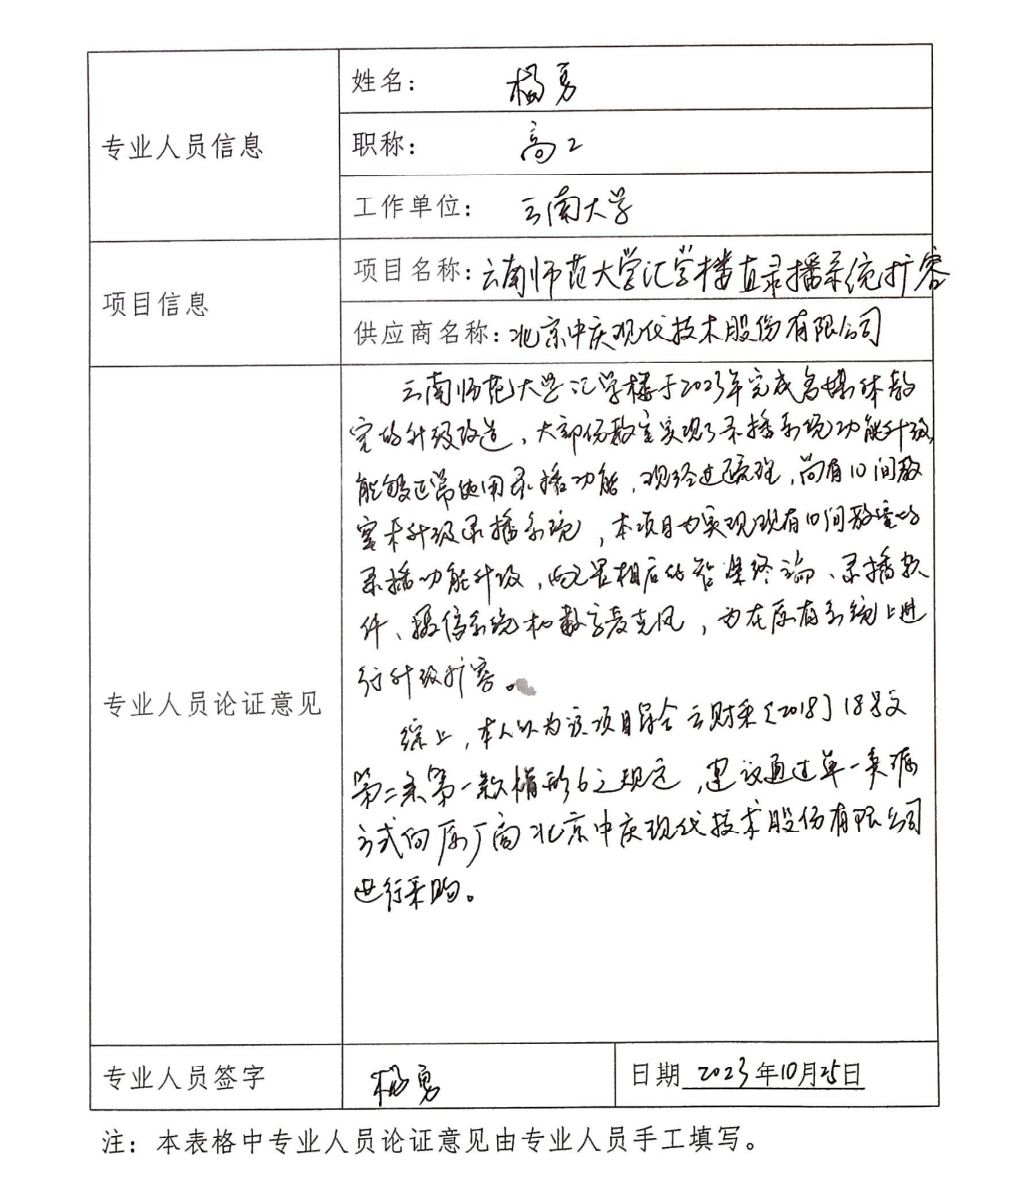 专业人员信息
姓名：杨勇
职称：高工
工作单位：云南大学
项目信息
项目名称：云南师范大学汇学楼直录播系统扩容
供应商名称：北京中庆现代技术股份有限公司
专业人员论证意见
云南师范大学汇学楼于2023年完成多媒体教
室的升级改造，大部份教室实现了录播系统功能升级，
能够正常使用录播功能，现经过梳理，尚有10间教
室未升级录播系统，本项目为实现现有10间教室的
录播功能升级，配置相应的智课终端、录播软
件、摄像系统和数字麦克风，为在原有系统上进
行升级扩容。
综上，本人认为该项目符合云财采〔2018〕18号文
第二条第一款情形6之规定，建议通过单一来源
方式向原厂商北京中庆现代技术股份有限公司
进行采购。
专业人员签字 杨勇 日期 2023年10月25日
注：本表格中专业人员论证意见由专业人员手工填写。